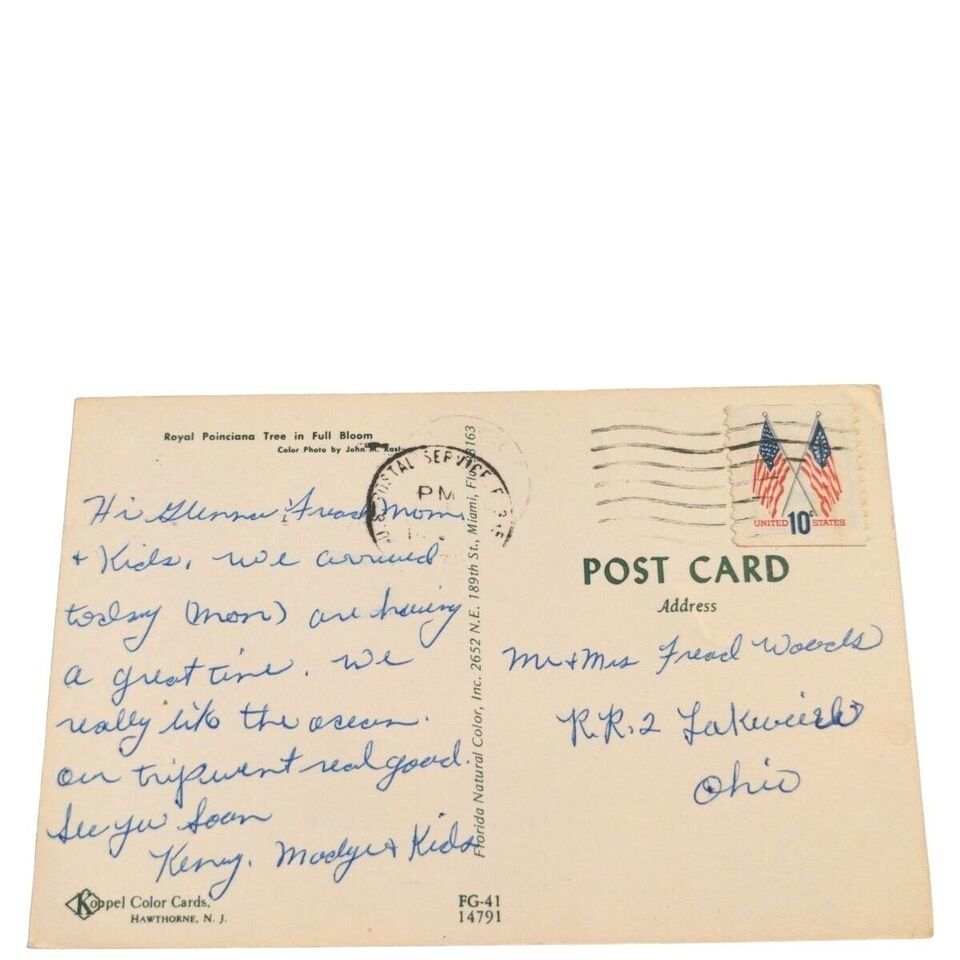 Royal Poinciana Tree in Full Bloom
Color Photo by John M.
Hi Glenna Fread Mom
& Kids, we arrived
today (Mon) are having
a great time. We
really lik the ocean.
our trip went real good.
See you Soon
Kenny, Madge & Kids
Koppel Color Cards,
HAWTHORNE, N. J.
U.S. POSTAL SERVICE
PM
Florida Natural Color, Inc. 2652 N.E. 189th St., Miami, Fla. 33163
FG-41
14791
UNITED 10c STATES
POST CARD
Address
Mr & Mrs Fread Woods
R.R. 2
Ohio